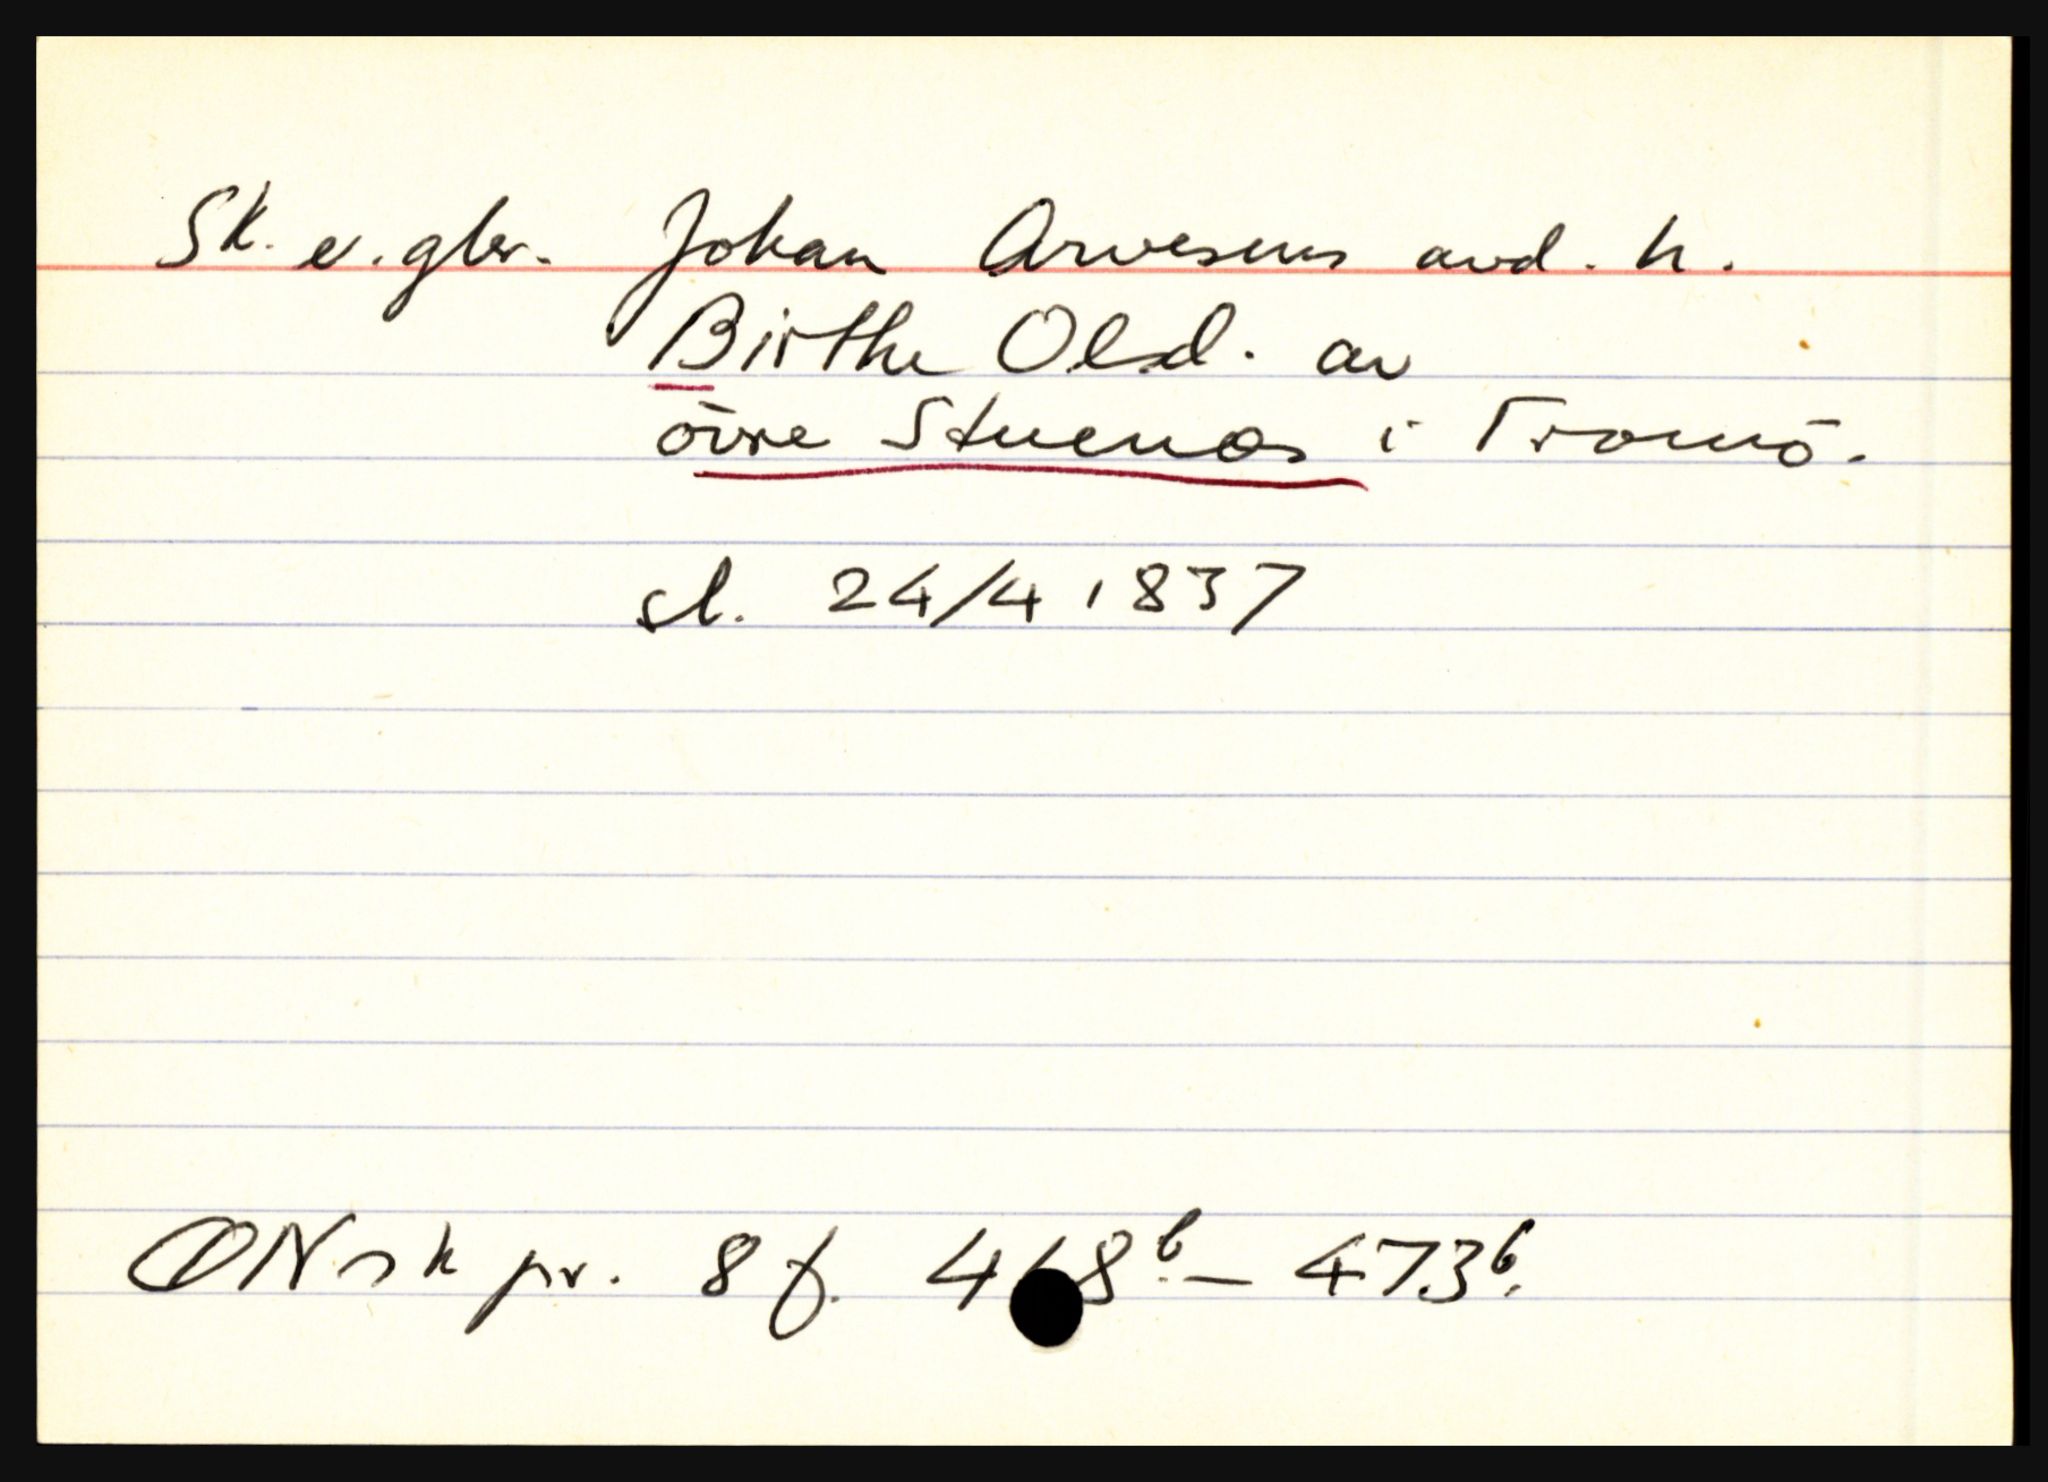 Sk. e. gbr. Johan Arvesens avd. h.
Birthe Olsd. av
övre Stuenes i Tromö.
sl. 24/4 1837
ØN sk pr. 8 f. 468b - 473b.